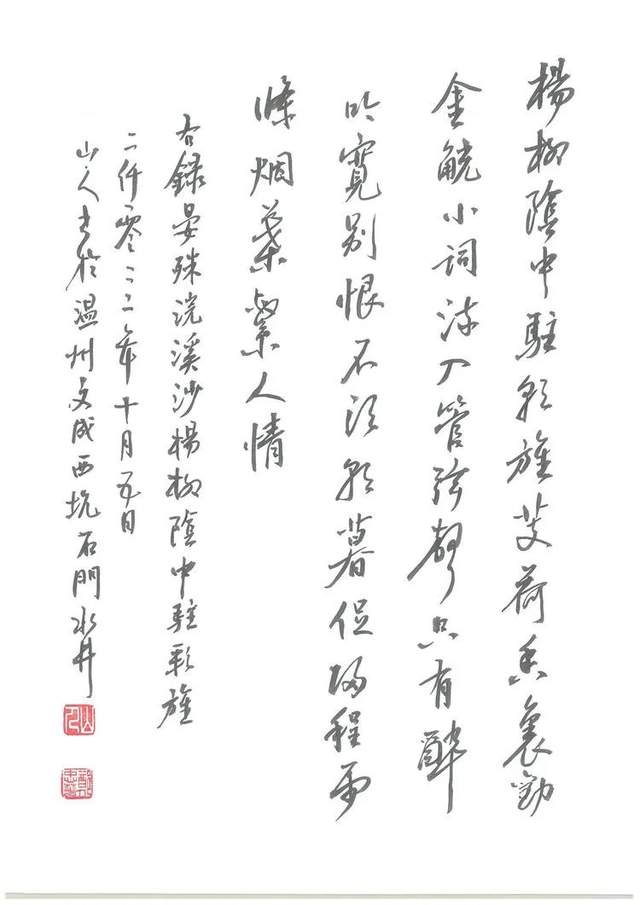 楊柳陰中駐彩旌芰荷香裏勸
金觥小詞流入管弦聲只有醉
吟寬别恨不須朝暮促歸程雨
條烟葉繫人情
右録晏殊浣溪沙楊柳陰中駐彩旌
二仟零二二年十月五日
山人書於温州文成西坑石門水井
山人